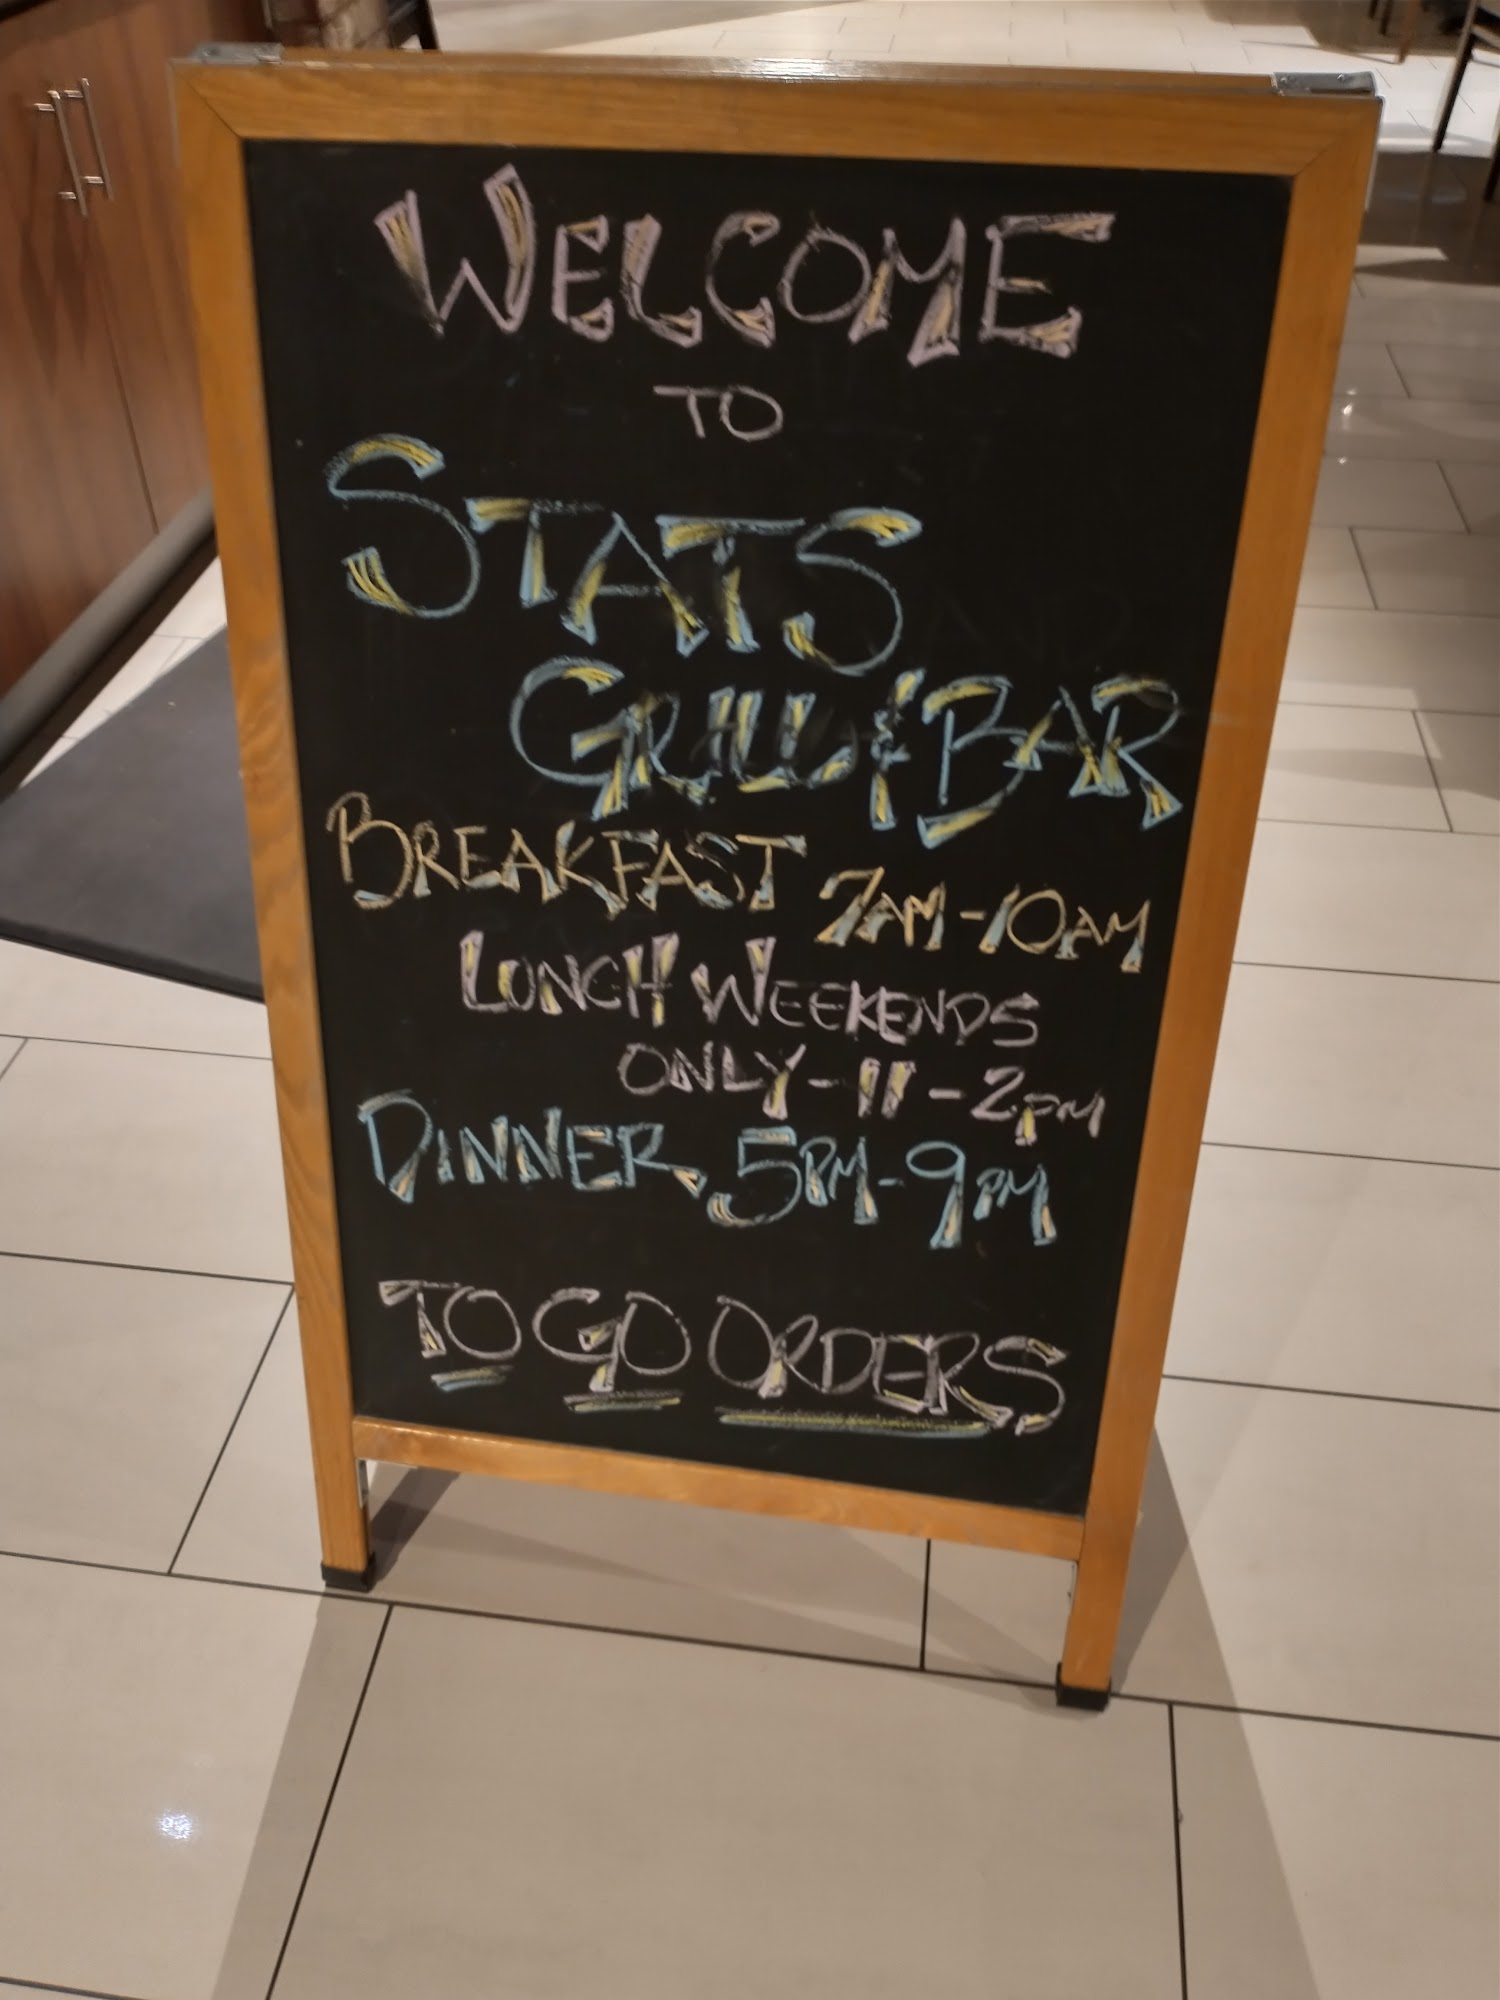 WELCOME
TO
STATS
GRILL & BAR
BREAKFAST 7AM-10AM
LUNCH WEEKENDS
ONLY-11-2PM
DINNER 5PM-9PM
TO GO ORDERS